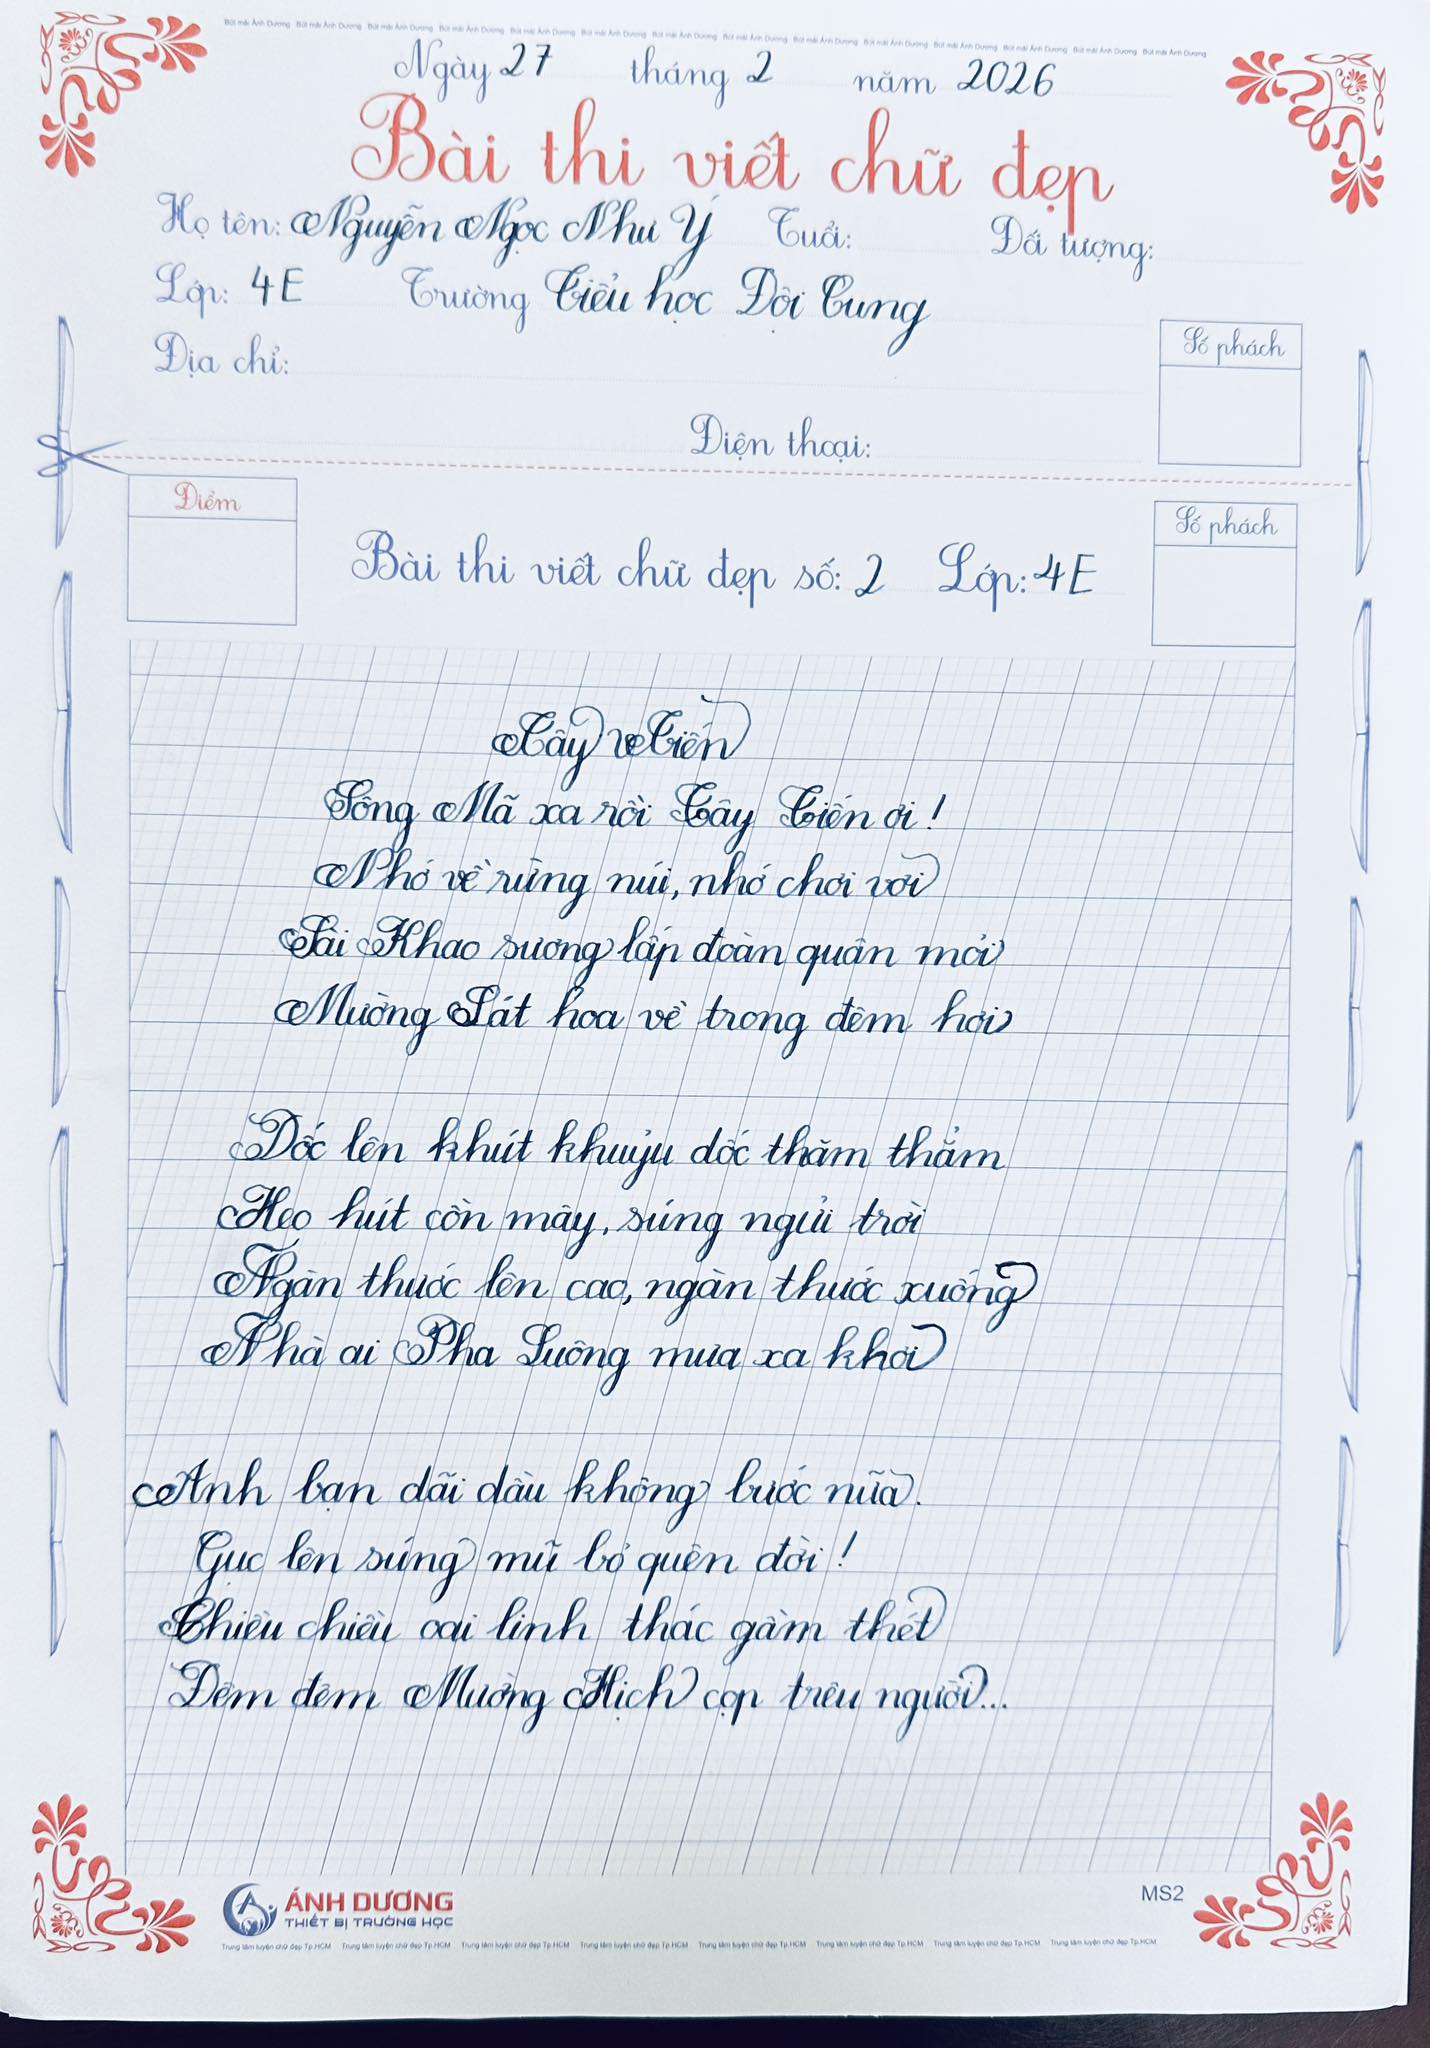 Bút mài Ánh Dương Bút mài Ánh Dương Bút mài Ánh Dương Bút mài Ánh Dương Bút mài Ánh Dương Bút mài Ánh Dương Bút mài Ánh Dương Bút mài Ánh Dương Bút mài Ánh Dương Bút mài Ánh Dương Bút mài Ánh Dương Bút mài Ánh Dương Bút mài Ánh Dương Bút mài Ánh Dương
Ngày 27 tháng 2 năm 2026
Bài thi viết chữ đẹp
Họ tên: Nguyễn Ngọc Như Ý Tuổi: Đối tượng:
Lớp: 4E Trường Tiểu học Đội Cung
Địa chỉ:
Số phách
Điện thoại:
Điểm
Số phách
Bài thi viết chữ đẹp số: 2 Lớp: 4E
Tây Tiến
Sông Mã xa rồi Tây Tiến ơi!
Nhớ về rừng núi, nhớ chơi vơi
Sài Khao sương lấp đoàn quân mỏi
Mường Lát hoa về trong đêm hơi
Dốc lên khút khuỷu dốc thăm thẳm
Heo hút cồn mây, súng ngửi trời
Ngàn thước lên cao, ngàn thước xuống
Nhà ai Pha Luông mưa xa khơi
Anh bạn dãi dầu không bước nữa.
Gục lên súng mũ bỏ quên đời!
Chiều chiều oai linh thác gầm thét
Đêm đêm Mường Hịch cọp trêu người...
ÁNH DƯƠNG
THIẾT BỊ TRƯỜNG HỌC
MS2
Trung tâm luyện chữ đẹp Tp.HCM Trung tâm luyện chữ đẹp Tp.HCM Trung tâm luyện chữ đẹp Tp.HCM Trung tâm luyện chữ đẹp Tp.HCM Trung tâm luyện chữ đẹp Tp.HCM Trung tâm luyện chữ đẹp Tp.HCM Trung tâm luyện chữ đẹp Tp.HCM Trung tâm luyện chữ đẹp Tp.HCM